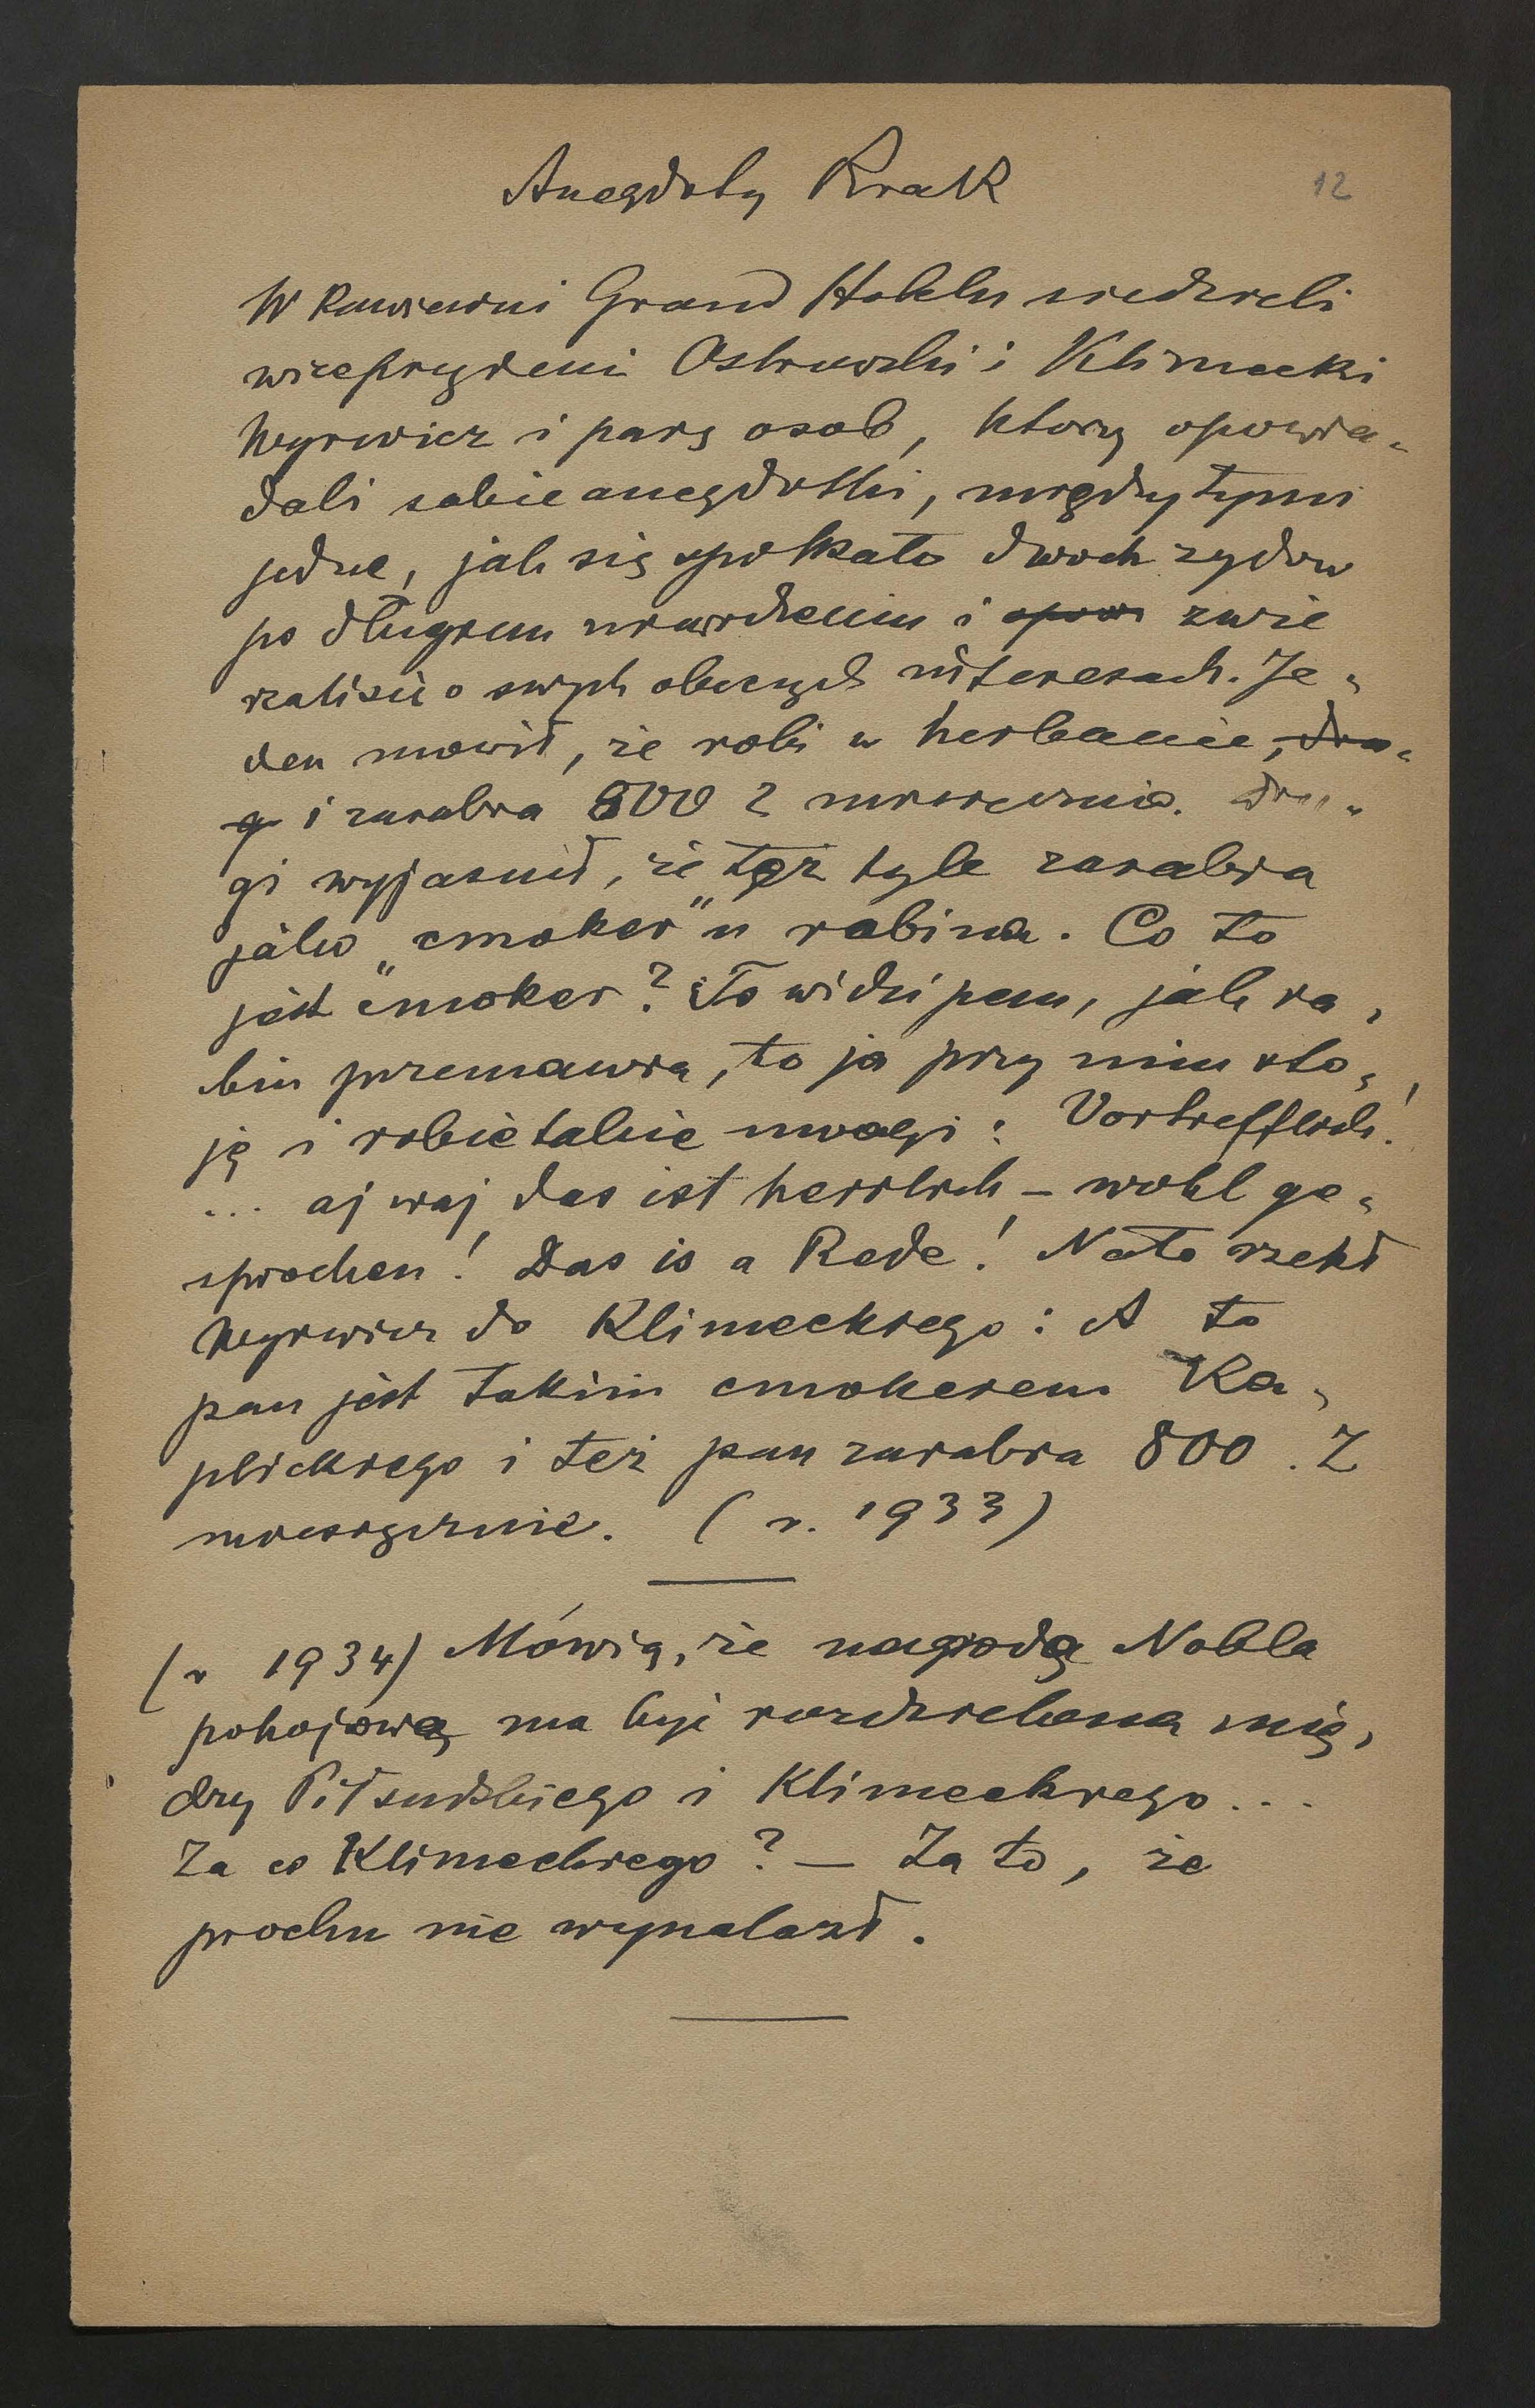 Anegdoty Krak
12
W kawiarni Grand Hotelu siedzieli
wiceprezydenci Ostrowski i Klimecki
Wyrwicz i parę osob, ktorzy opowia-
dali sobie anegdotki, między tymi
jedne, jak się spotkało dwoch zydow
po długiem niewidzeniu i opow zwie
rzali się o swych obecnych interesach. Je-
den mowił, że robi w herbacie, dru-
g i zarabia 800 Z miesięcznie. Dru-
gi wyjasnił, że też tyle zarabia
jako „cmoker" u rabina. Co to
jest cmoker? To widzi pan, jak ra-
bin przemawia, to ja przy nim sto-
ję i robie takie uwagi: Vortrefflich!
... aj waj das ist herrlich – wohl ge-
sprochen! Das is a Rede! Na to rzekł
Wyrwicz do Klimeckiego: A to
pan jest takim cmokerem Ka-
plickiego i też pan zarabia 800. Z
miesięcznie. (r. 1933)
(r 1934) Mówią, że nagrodą Nobla
pokojową ma być rozdzielona mię-
dzy Piłsudskiego i Klimeckiego...
Za co Klimeckiego? – Za to, że
prochu nie wynalazł.